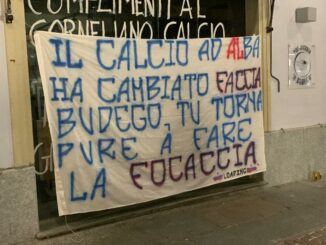 COMPLIMENTI AL
CORNELIANO CALCIO
IL CALCIO AD ALBA
HA CAMBIATO FACCIA
BUDEGO, TU TORNA
PURE A FARE
LA FOCACCIA